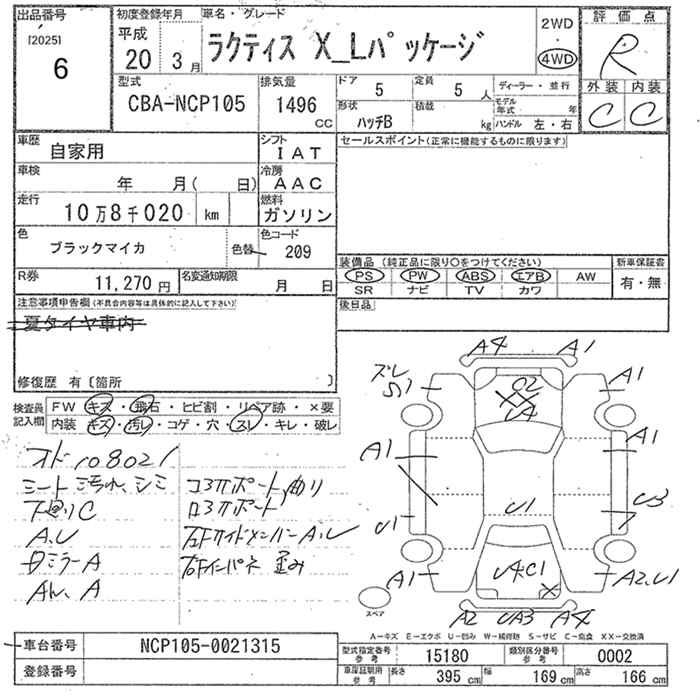 出品番号 初度登録年月 車名・グレード 2WD 評価点
[2025] 平成 ラクティス X_Lパッケージ 4WD R
6 20 3月
型式 排気量 ドア 5 定員 5人 ディーラー・並行 外装 内装
CBA-NCP105 1496 CC 形状 ハッチB 積載 kg モデル年式 年 C C
ハンドル 左・右
車歴 自家用 シフト IAT セールスポイント(正常に機能するものに限ります)
車検 年 月( 日) 冷房 AAC
走行 10万8千020 km 燃料 ガソリン
色 ブラックマイカ 色替 色コード 209
装備品 (純正品に限り○をつけてください) 新車保証書
R券 11,270円 名変通知期限 月 日 PS PW ABS エアB AW 有・無
SR ナビ TV カワ
注意事項申告欄(不具合内容等は具体的に記入して下さい) 後日品
夏タイヤ車内
修復歴 有〔箇所 〕
検査員記入欄 FW キズ・飛石・ヒビ割・リペア跡・×要
内装 キズ・汚レ・コゲ・穴・スレ・キレ・破レ
A4 A1
ズレ S1 A1
02 XX U4
A1 A1
U1 U1 U3
A1 U4.C1 X A2.U1
A2 UA3 A4
スペア
オド108021
シート汚れ、シミ コ3アポート曲り
下回りC ロ3アポート
A.U 左Fサイドメンバー A.U
日ミラーA 左Fインパネ 歪み
AW. A
A−キズ E−エクボ U−凹み W−補修跡 S−サビ C−腐食 XX−交換済
車台番号 NCP105-0021315 型式指定番号 参考 15180 類別区分番号 参考 0002
登録番号 車庫証明用 参考 長さ 395 cm 幅 169 cm 高さ 166 cm